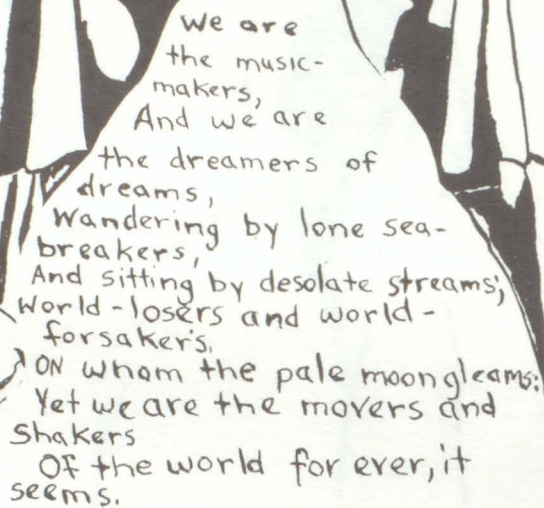 We are
the music-
makers,
And we are
the dreamers of
dreams,
Wandering by lone sea-
breakers,
And sitting by desolate streams;
World-losers and world-
forsakers,
ON whom the pale moon gleams:
Yet we are the movers and
Shakers
Of the world for ever, it
seems.